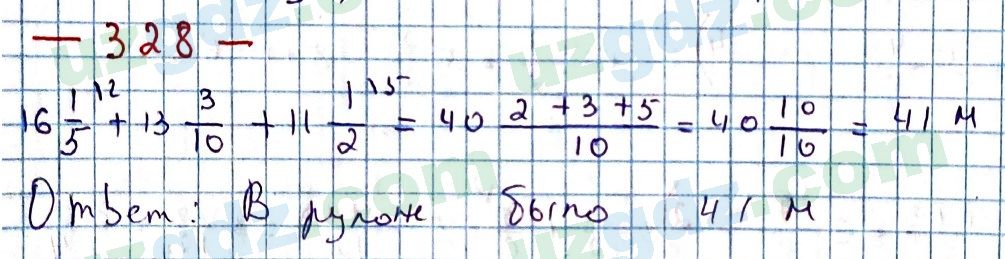 — 328 —
16 1/5 \2 + 13 3/10 + 11 1/2 \5 = 40 (2 + 3 + 5)/10 = 40 10/10 = 41 м
Ответ: В рулоне было 41 м